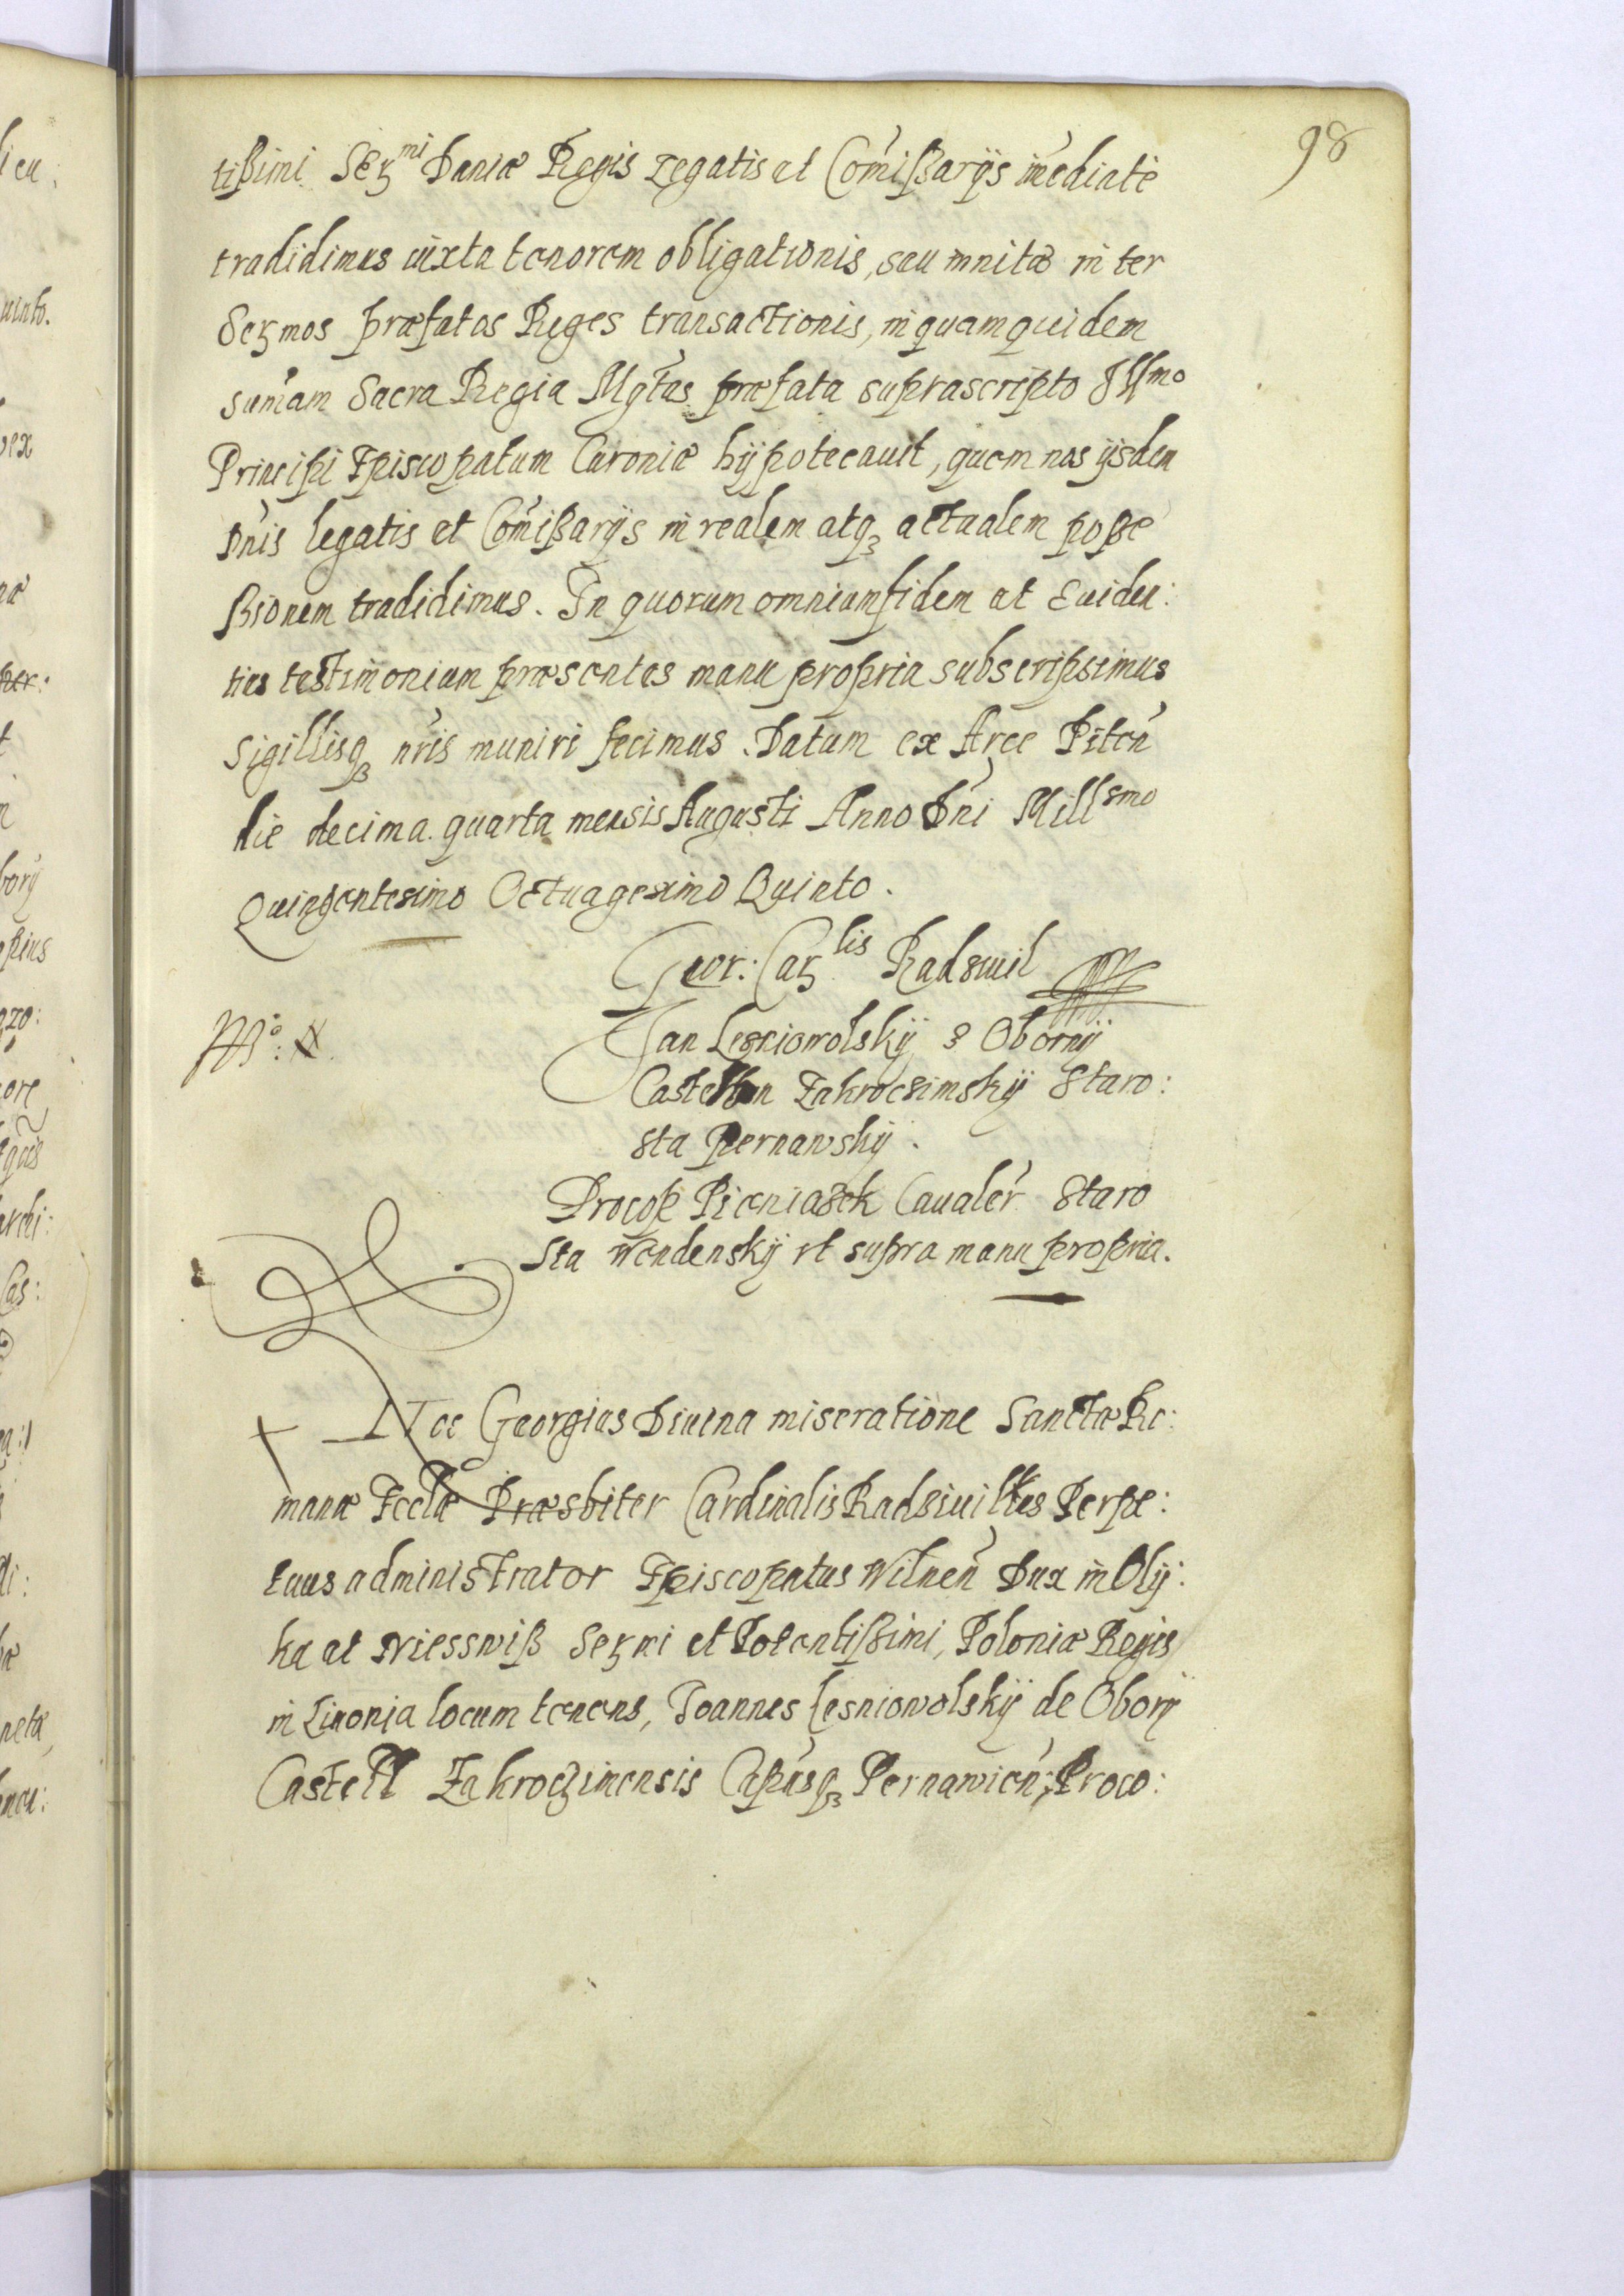 98
tißimi Serᵐⁱ Daniæ Regis Legatis et Com̃ißarijs im̃ediatè
tradidimus iuxta tenorem obligationis, seu initæ inter
Sermos præfatos Reges transactionis, in quam quidem
sum̃am Sacra Regia Mgtas præfata suprascripto Illmo
Principi Episcopatum Curoniæ hÿpotecauit, quem nos ijsdem
Dn̄is legatis et Com̃ißarijs in realem atqꝫ actualem poße
ßionem tradidimus. In quorum omnium fidem et Euiden:
tius testimonium præsentes manu propria subscripsimus
Sigillisqꝫ nr̄is muniri fecimus. Datum ex Arce Pilten̄
die decima quarta mensis Augusti Anno Dn̄i Millsmo
Quingentesimo Octuagesimo Quinto.
Geor: Carlis Radswil
No: X.
Jan Lesniowolskÿ z Obornÿ
Castellan Zakroczimskÿ Staro:
sta Pernawskÿ.
Procop Pieniaszek Caualer̄ Staro
sta Wendenskÿ vt supra manu propria.
Nos Georgius Diuina miseratione Sanctæ Ro:
manæ Eccl̄æ Præsbiter Cardinalis Radziuillus Perpe:
tuus administrator Episcopatus Wilnen̄ Dux in Olÿ:
ka et Niesswiß Sermi et Potentißimi, Poloniæ Regis
in Liuonia locum tenens, Joannes Lesniowolskÿ de Oborÿ
Castell Zakroczimensis Cap̄usqꝫ Pernawien̄, Proco: